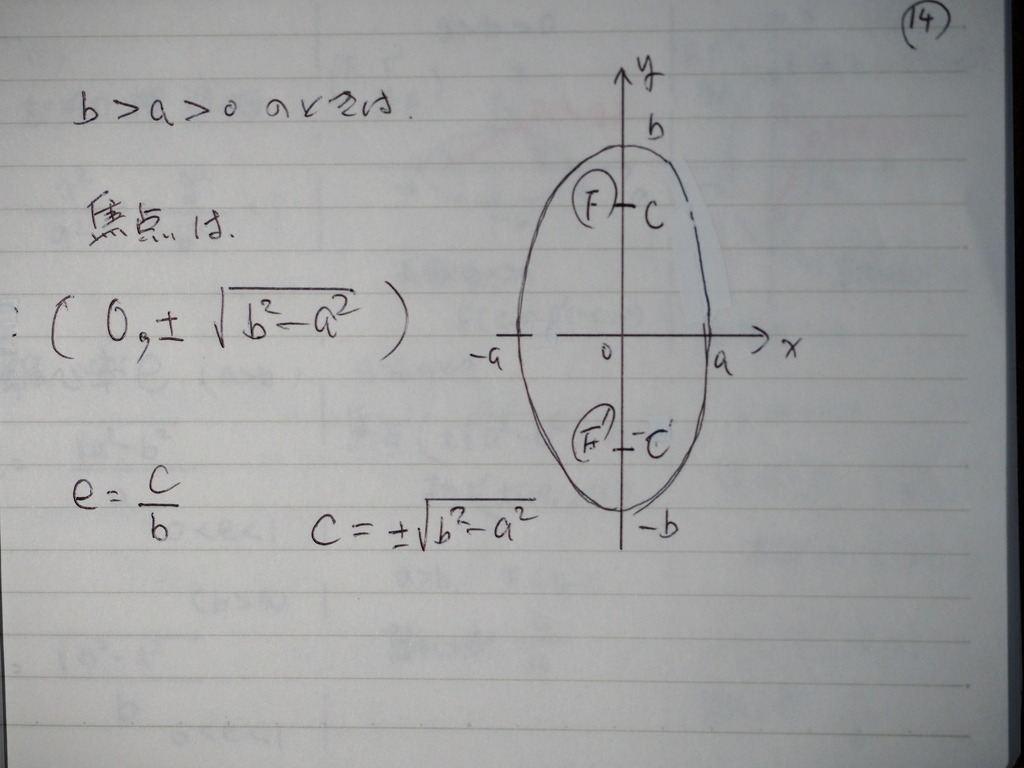 14
b > a > 0 のときは.
焦点は.
: ( 0, ± √(b²-a²) )
e = c/b
C = ±√(b²-a²)
y
b
F
C
-a
0
a
x
F'
-C
-b